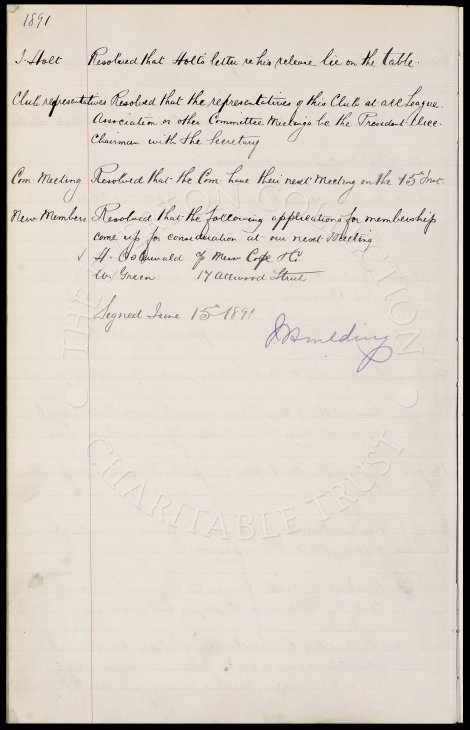 1891
J. Holt Resolved that Holt's letter re his release lie on the table.
Club representatives Resolved that the representatives of this Club at all League
Association or other Committee Meetings be the President Vice-
Chairman with the Secretary
Com Meeting Resolved that the Com have their next Meeting on the 15th Inst.
New Members Resolved that the following applications for membership
come up for consideration at our next Meeting
H. Oswald of Messrs Cope & Co
W. Green 17 Attwood Street
Signed June 15th 1891
THE EVERTON COLLECTION
CHARITABLE TRUST